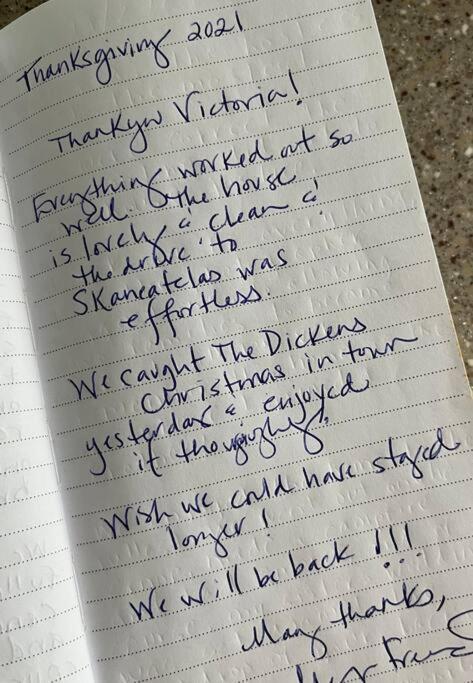 Thanksgiving 2021
Thankyou Victoria!
Everything worked out so
well. The house
is lovely & clean &
the drive to
Skaneatelas was
effortless.
We caught The Dickens
Christmas in town
yesterday & enjoyed
it thoroughly.
Wish we could have stayed
longer!
We will be back !!!
Many thanks,